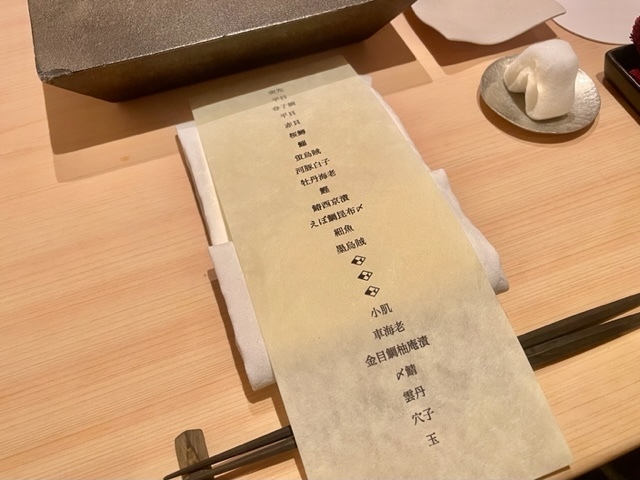 平目
平貝
赤貝
桜鱒
蛍烏賊
河豚白子
牡丹海老
鰹
鰆西京漬
えぼ鯛昆布〆
細魚
墨烏賊
小肌
車海老
金目鯛柚庵漬
〆鯖
雲丹
穴子
玉